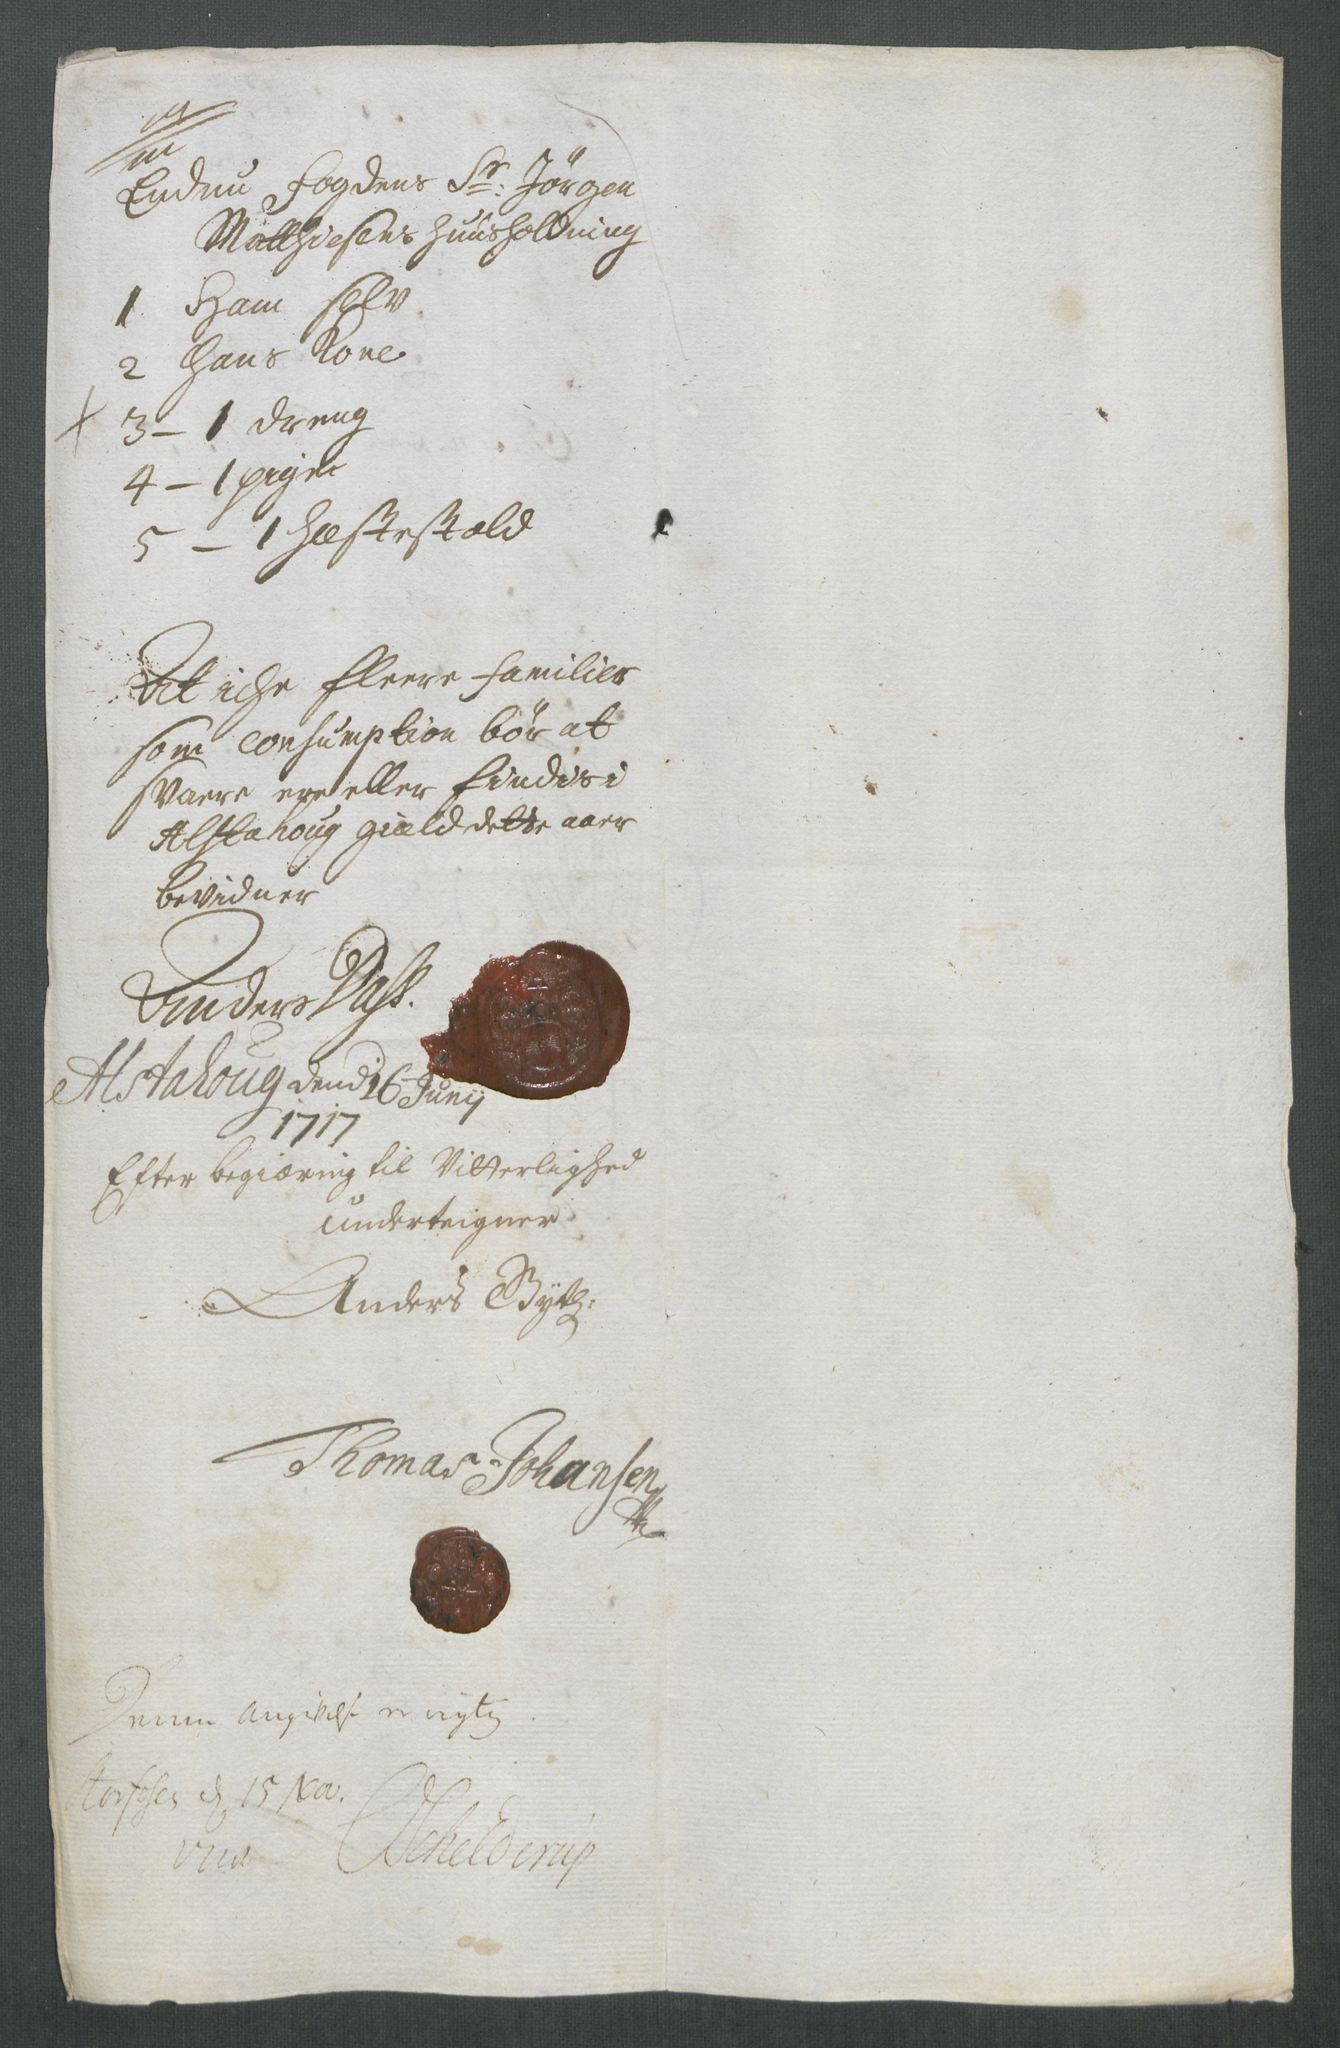 Endnu Fogdens Sr: Jörgen
Matthiesens huusholdning
1 Ham selv
2 hans kone
3 – 1 dreng
4 – 1 pige
5 – 1 hæstestald
At iche fleere familier
som consumption bör at
svaere ere eller findis i
Alstahoug gield dette aaer
bevidner
Anders Dass.
Alstahoug dend 16 Junij
1717
Efter begiæring til Vitterlighed
underteigner
Anders Bÿtz:
Thomas Johansen
Denne angivelse er rigtig
d 15
Schelderup